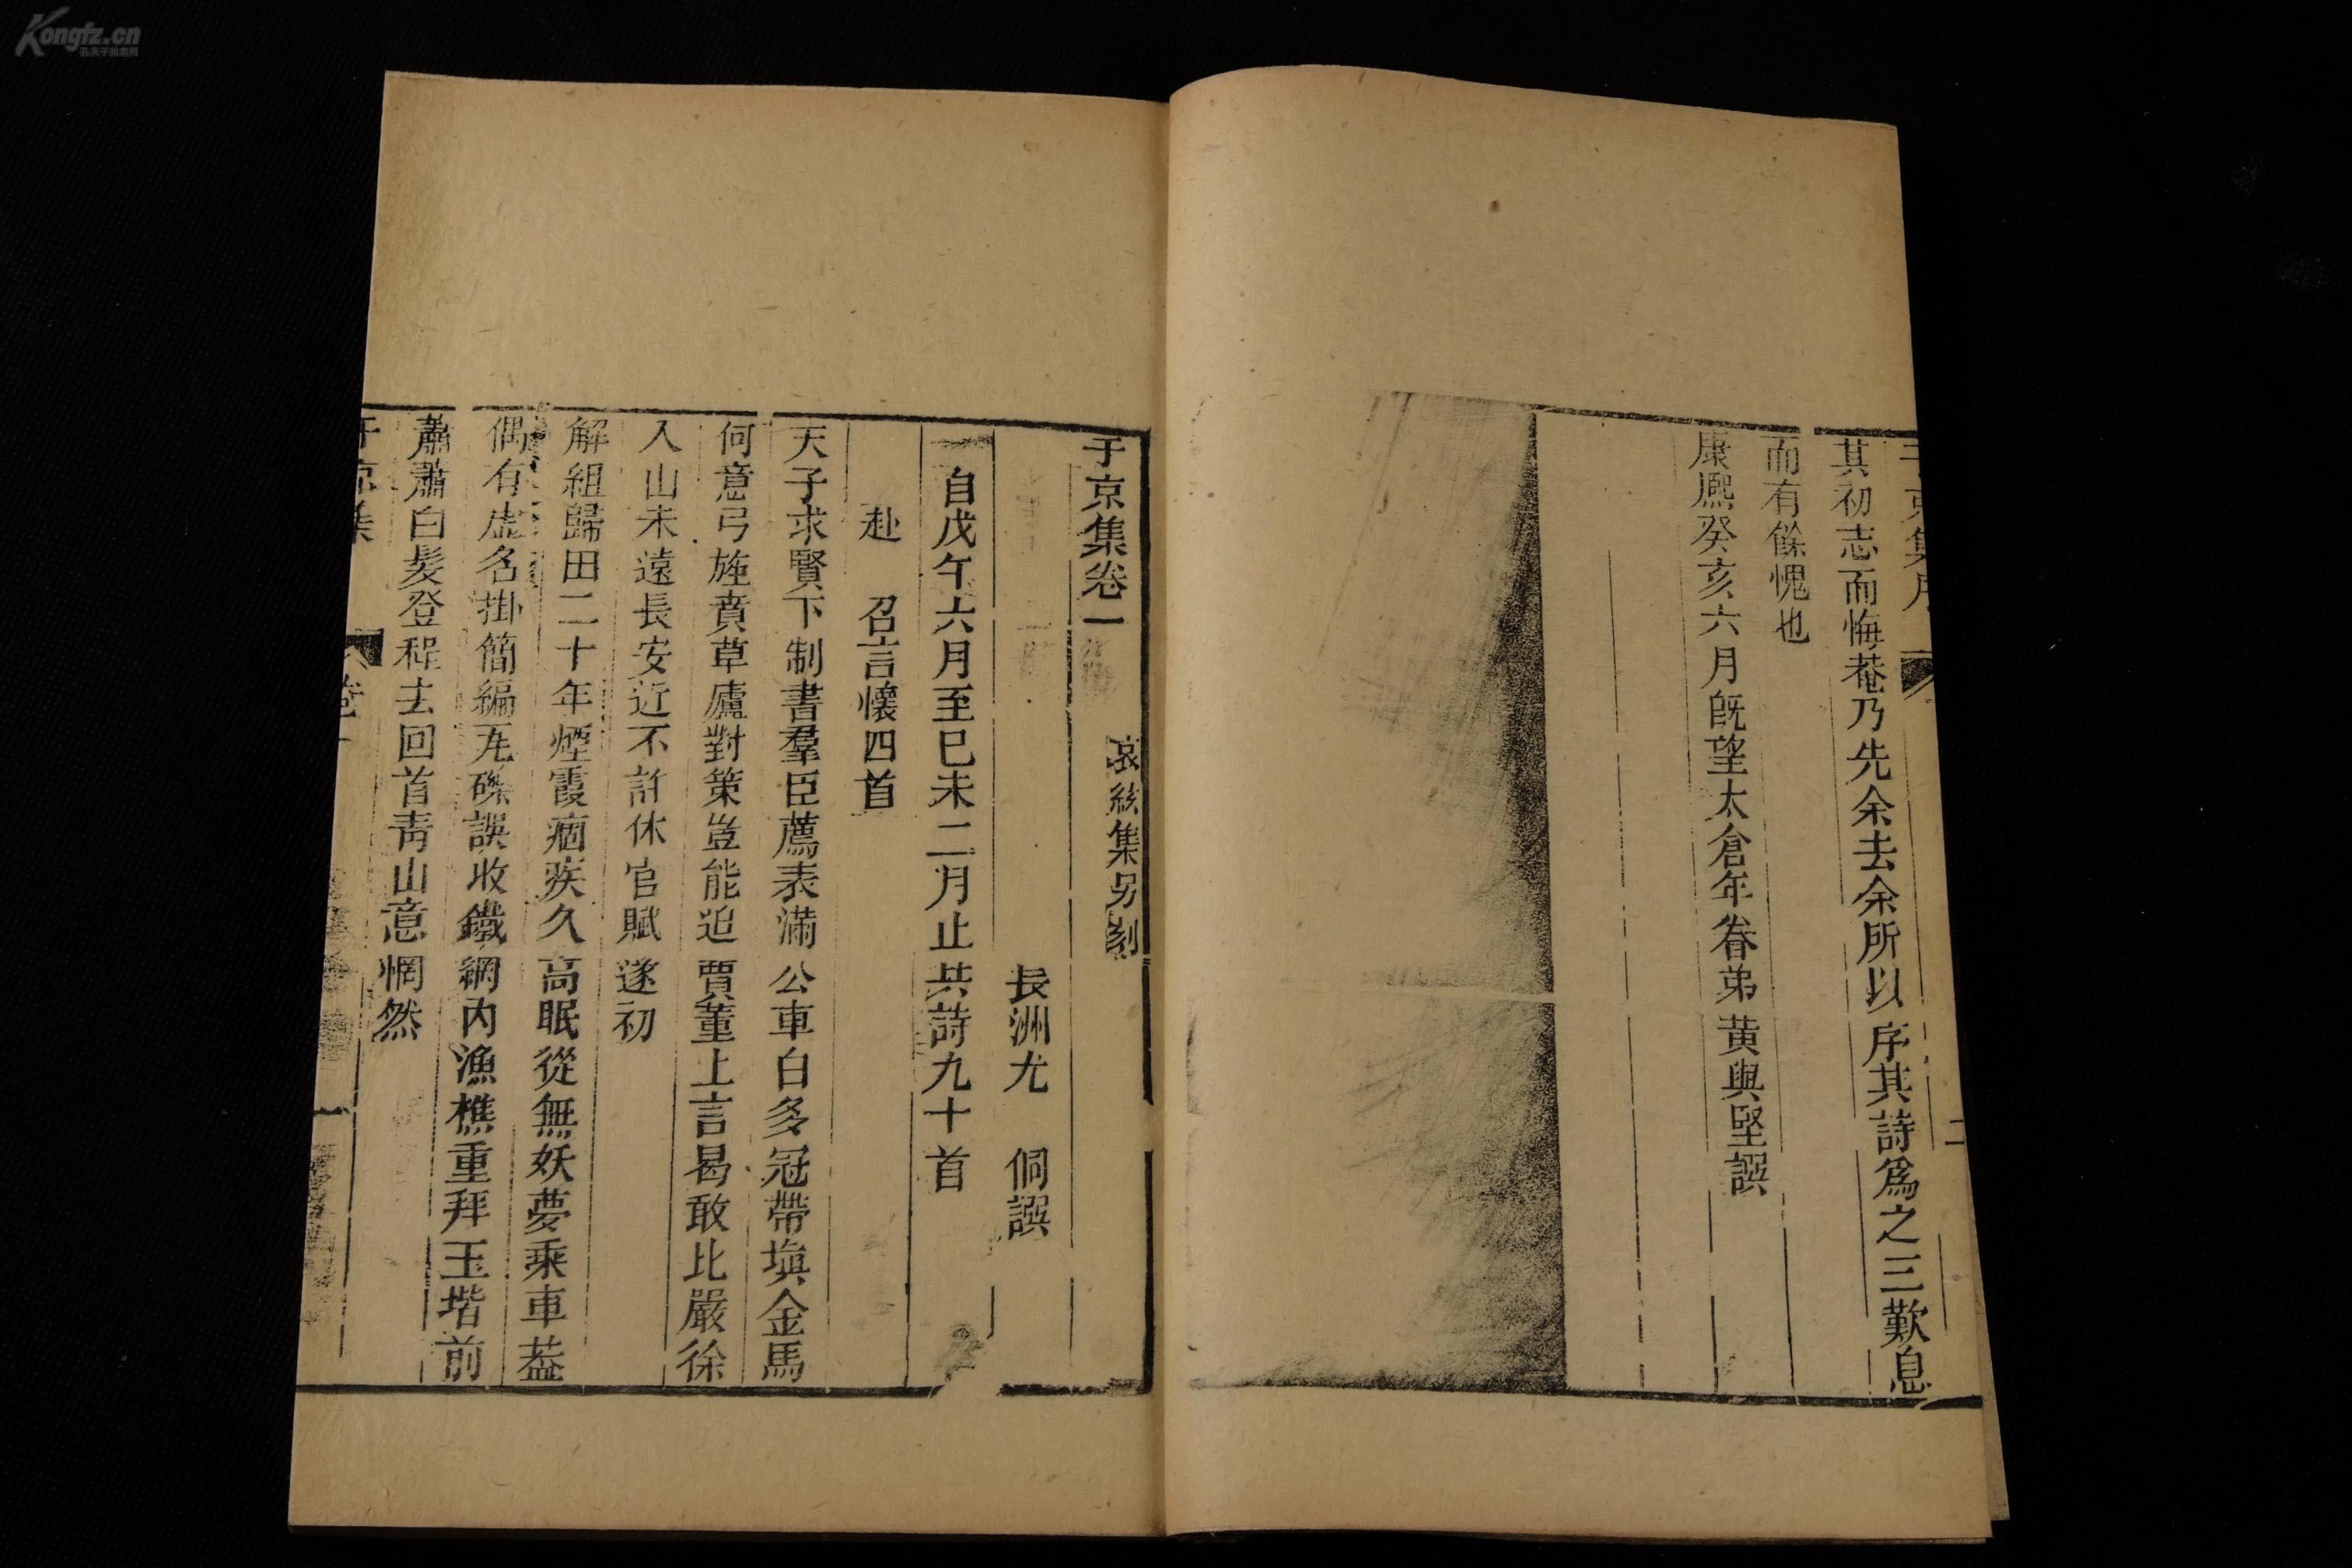 Kongfz.cn
孔夫子拍卖网
其初志而悔菴乃先余去余所以序其詩爲之三歎息
而有餘愧也
康熈癸亥六月旣望太倉年眷弟黄與堅譔
二
于京集卷一
哀絃集另刻
長洲尤 侗譔
自戊午六月至巳未二月止共詩九十首
赴 召言懷四首
天子求賢下制書羣臣薦表滿公車白多冠帶塡金馬
何意弓旌賁草廬對策豈能追賈董上言曷敢比嚴徐
入山未遠長安近不許休官賦遂初
解組歸田二十年煙霞痼疾久高眠從無妖夢乘車葢
偶有虛名掛簡編珗磔誤收鐵網內漁樵重拜玉堦前
蕭蕭白髮登程去回首靑山意惘然
于京集
卷一
一